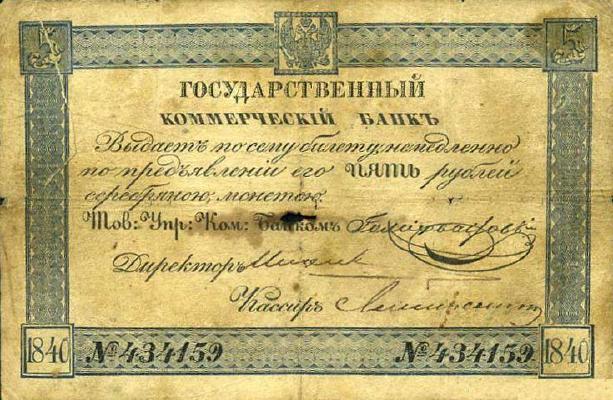 5 5
ГОСУДАРСТВЕННЫЙ
КОММЕРЧЕСКІЙ БАНКЪ
Выдаетъ по сему билету немедленно
по предъявленіи его ПЯТЬ рублей
серебряною монетою.
Тов: Упр: Ком: Банкомъ
Директоръ
Кассиръ
1840 №434159 №434159 1840